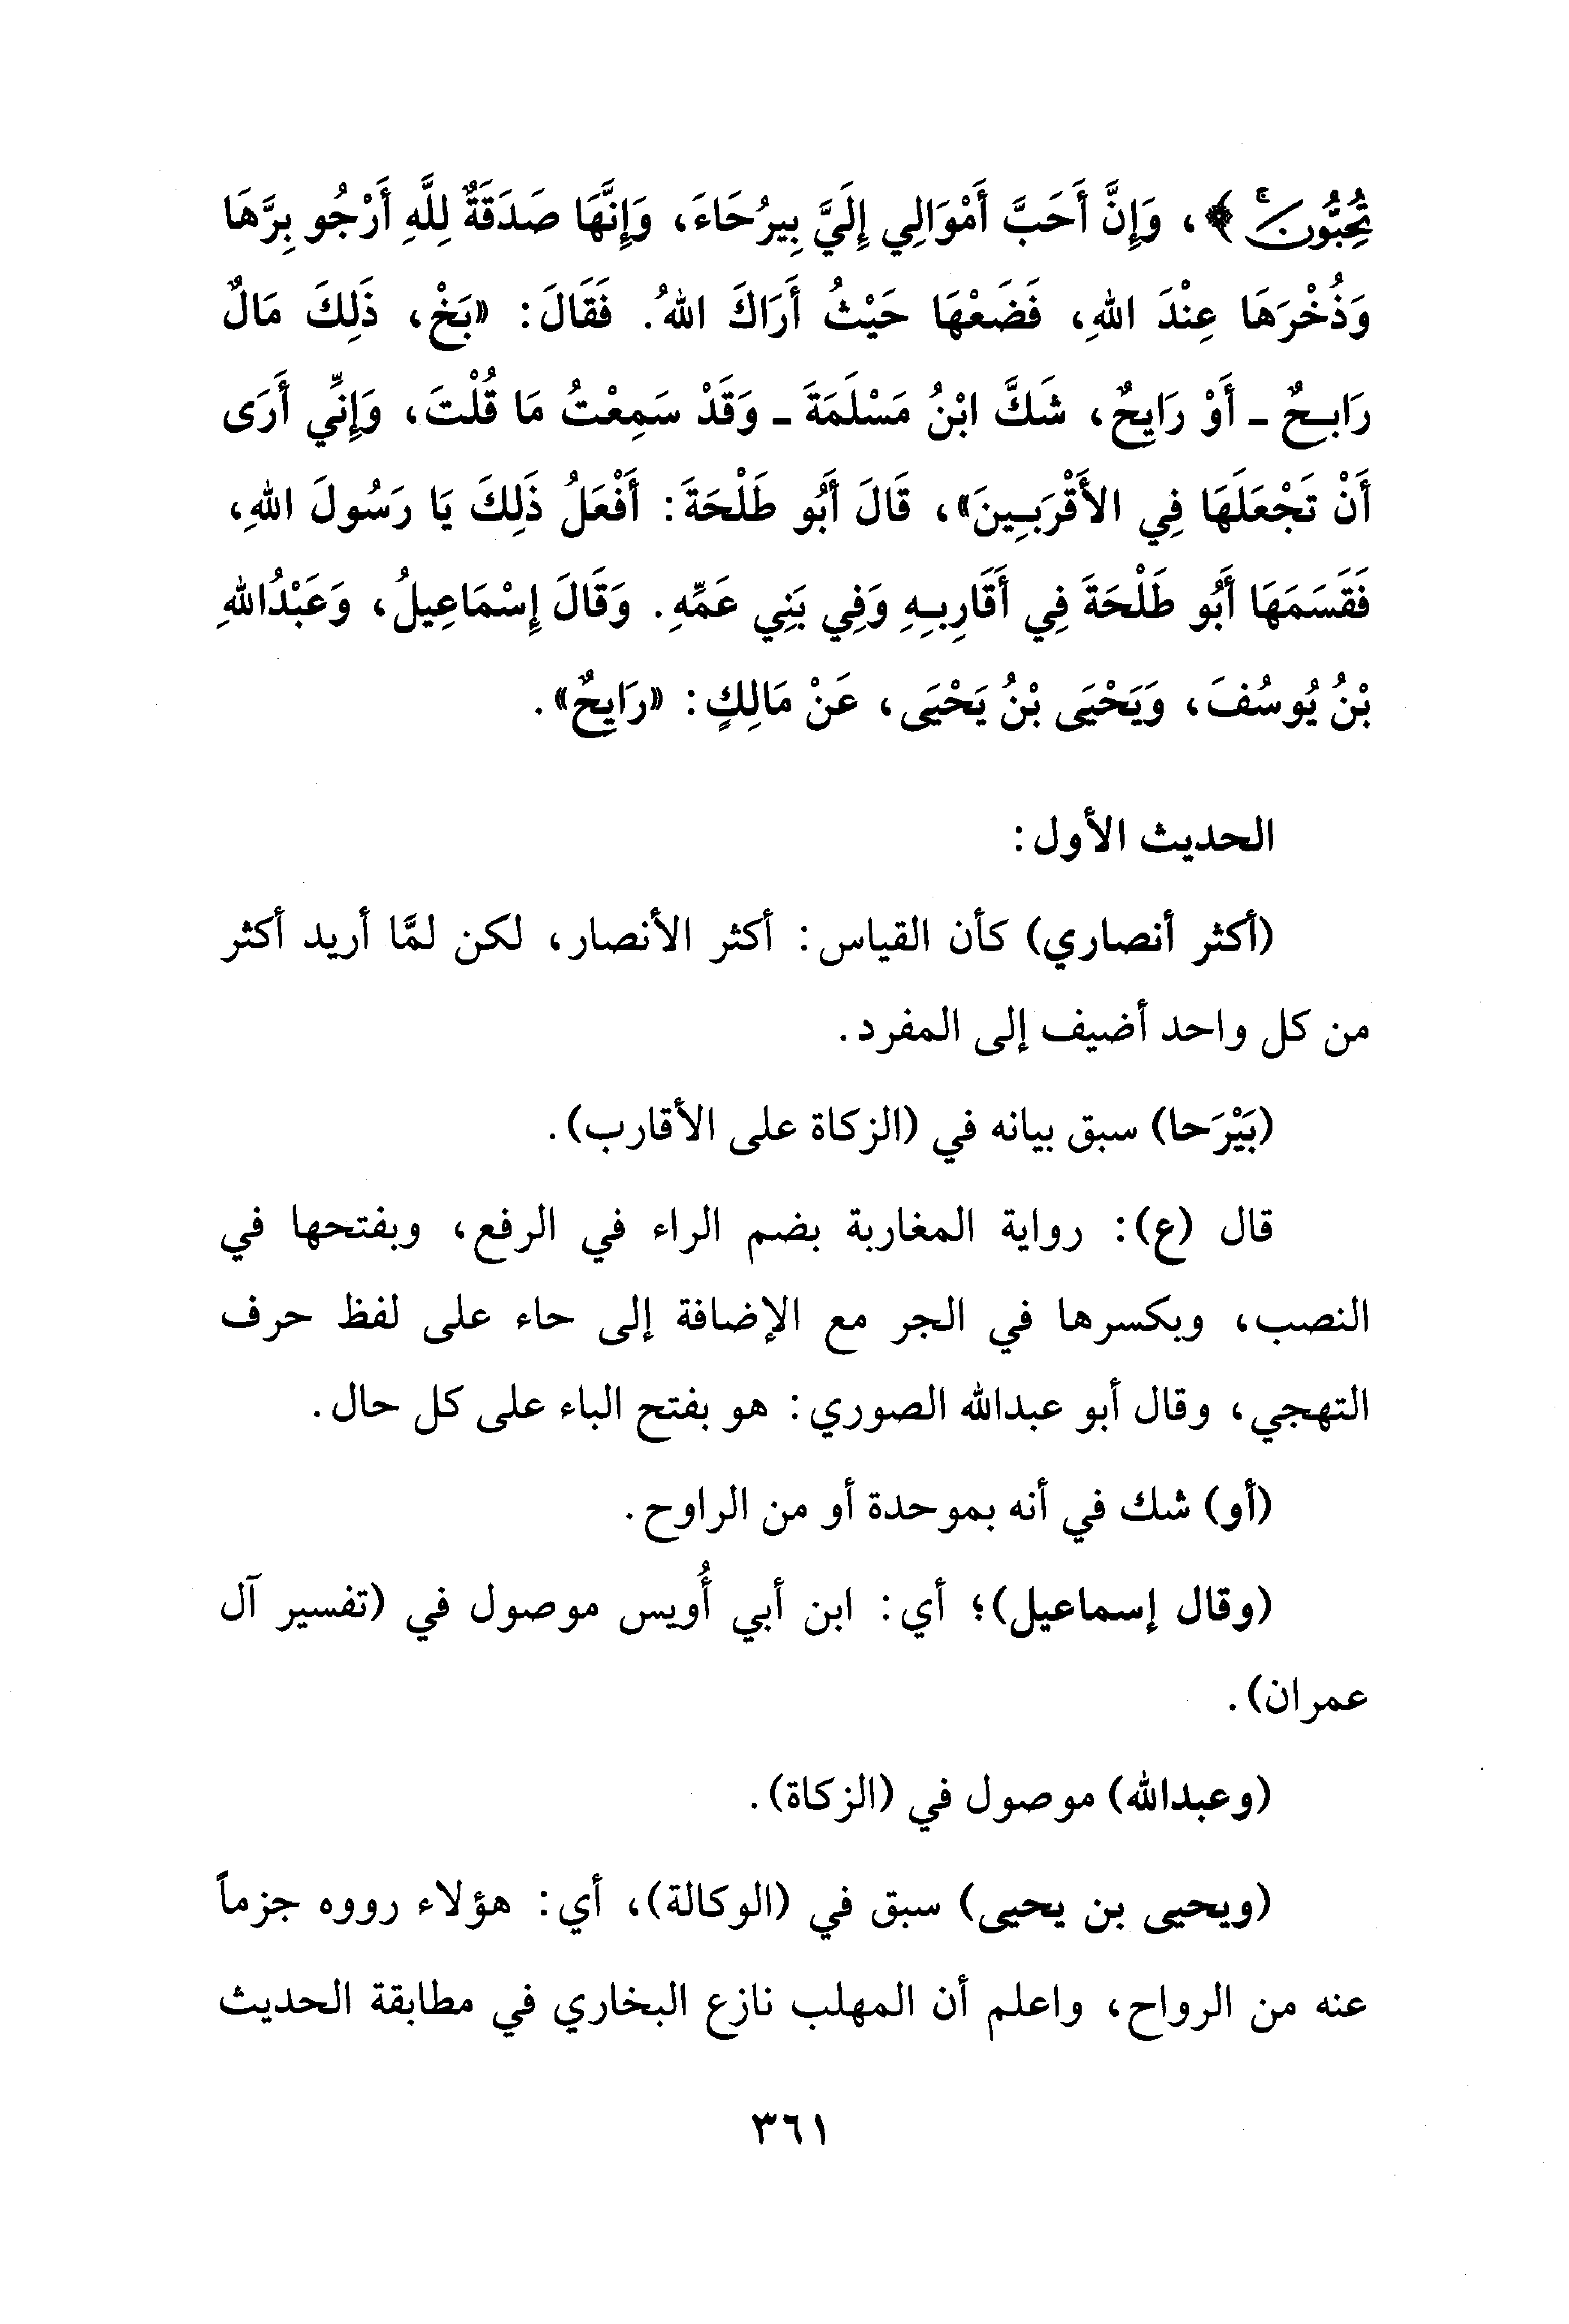 تُحِبُّونَ ﴾، وَإِنَّ أَحَبَّ أَمْوَالِي إِلَيَّ بِيرُحَاءَ، وَإِنَّهَا صَدَقَةٌ لِلَّهِ أَرْجُو بِرَّهَا
وَذُخْرَهَا عِنْدَ اللهِ، فَضَعْهَا حَيْثُ أَرَاكَ اللهُ. فَقَالَ: «بَخْ، ذَلِكَ مَالٌ
رَابِحٌ ـ أَوْ رَايِحٌ، شَكَّ ابْنُ مَسْلَمَةَ ـ وَقَدْ سَمِعْتُ مَا قُلْتَ، وَإِنِّي أَرَى
أَنْ تَجْعَلَهَا فِي الأَقْرَبِينَ»، قَالَ أَبُو طَلْحَةَ: أَفْعَلُ ذَلِكَ يَا رَسُولَ اللهِ،
فَقَسَمَهَا أَبُو طَلْحَةَ فِي أَقَارِبِهِ وَفِي بَنِي عَمِّهِ. وَقَالَ إِسْمَاعِيلُ، وَعَبْدُاللهِ
بْنُ يُوسُفَ، وَيَحْيَى بْنُ يَحْيَى، عَنْ مَالِكٍ: «رَايِحٌ».
الحديث الأول:
(أكثر أنصاري) كأن القياس: أكثر الأنصار، لكن لمَّا أريد أكثر
من كل واحد أضيف إلى المفرد.
(بَيْرَحا) سبق بيانه في (الزكاة على الأقارب).
قال (ع): رواية المغاربة بضم الراء في الرفع، وبفتحها في
النصب، وبكسرها في الجر مع الإضافة إلى حاء على لفظ حرف
التهجي، وقال أبو عبدالله الصوري: هو بفتح الباء على كل حال.
(أو) شك في أنه بموحدة أو من الراوح.
(وقال إسماعيل)؛ أي: ابن أبي أُويس موصول في (تفسير آل
عمران).
(وعبدالله) موصول في (الزكاة).
(ويحيى بن يحيى) سبق في (الوكالة)، أي: هؤلاء رووه جزماً
عنه من الرواح، واعلم أن المهلب نازع البخاري في مطابقة الحديث
٣٦١